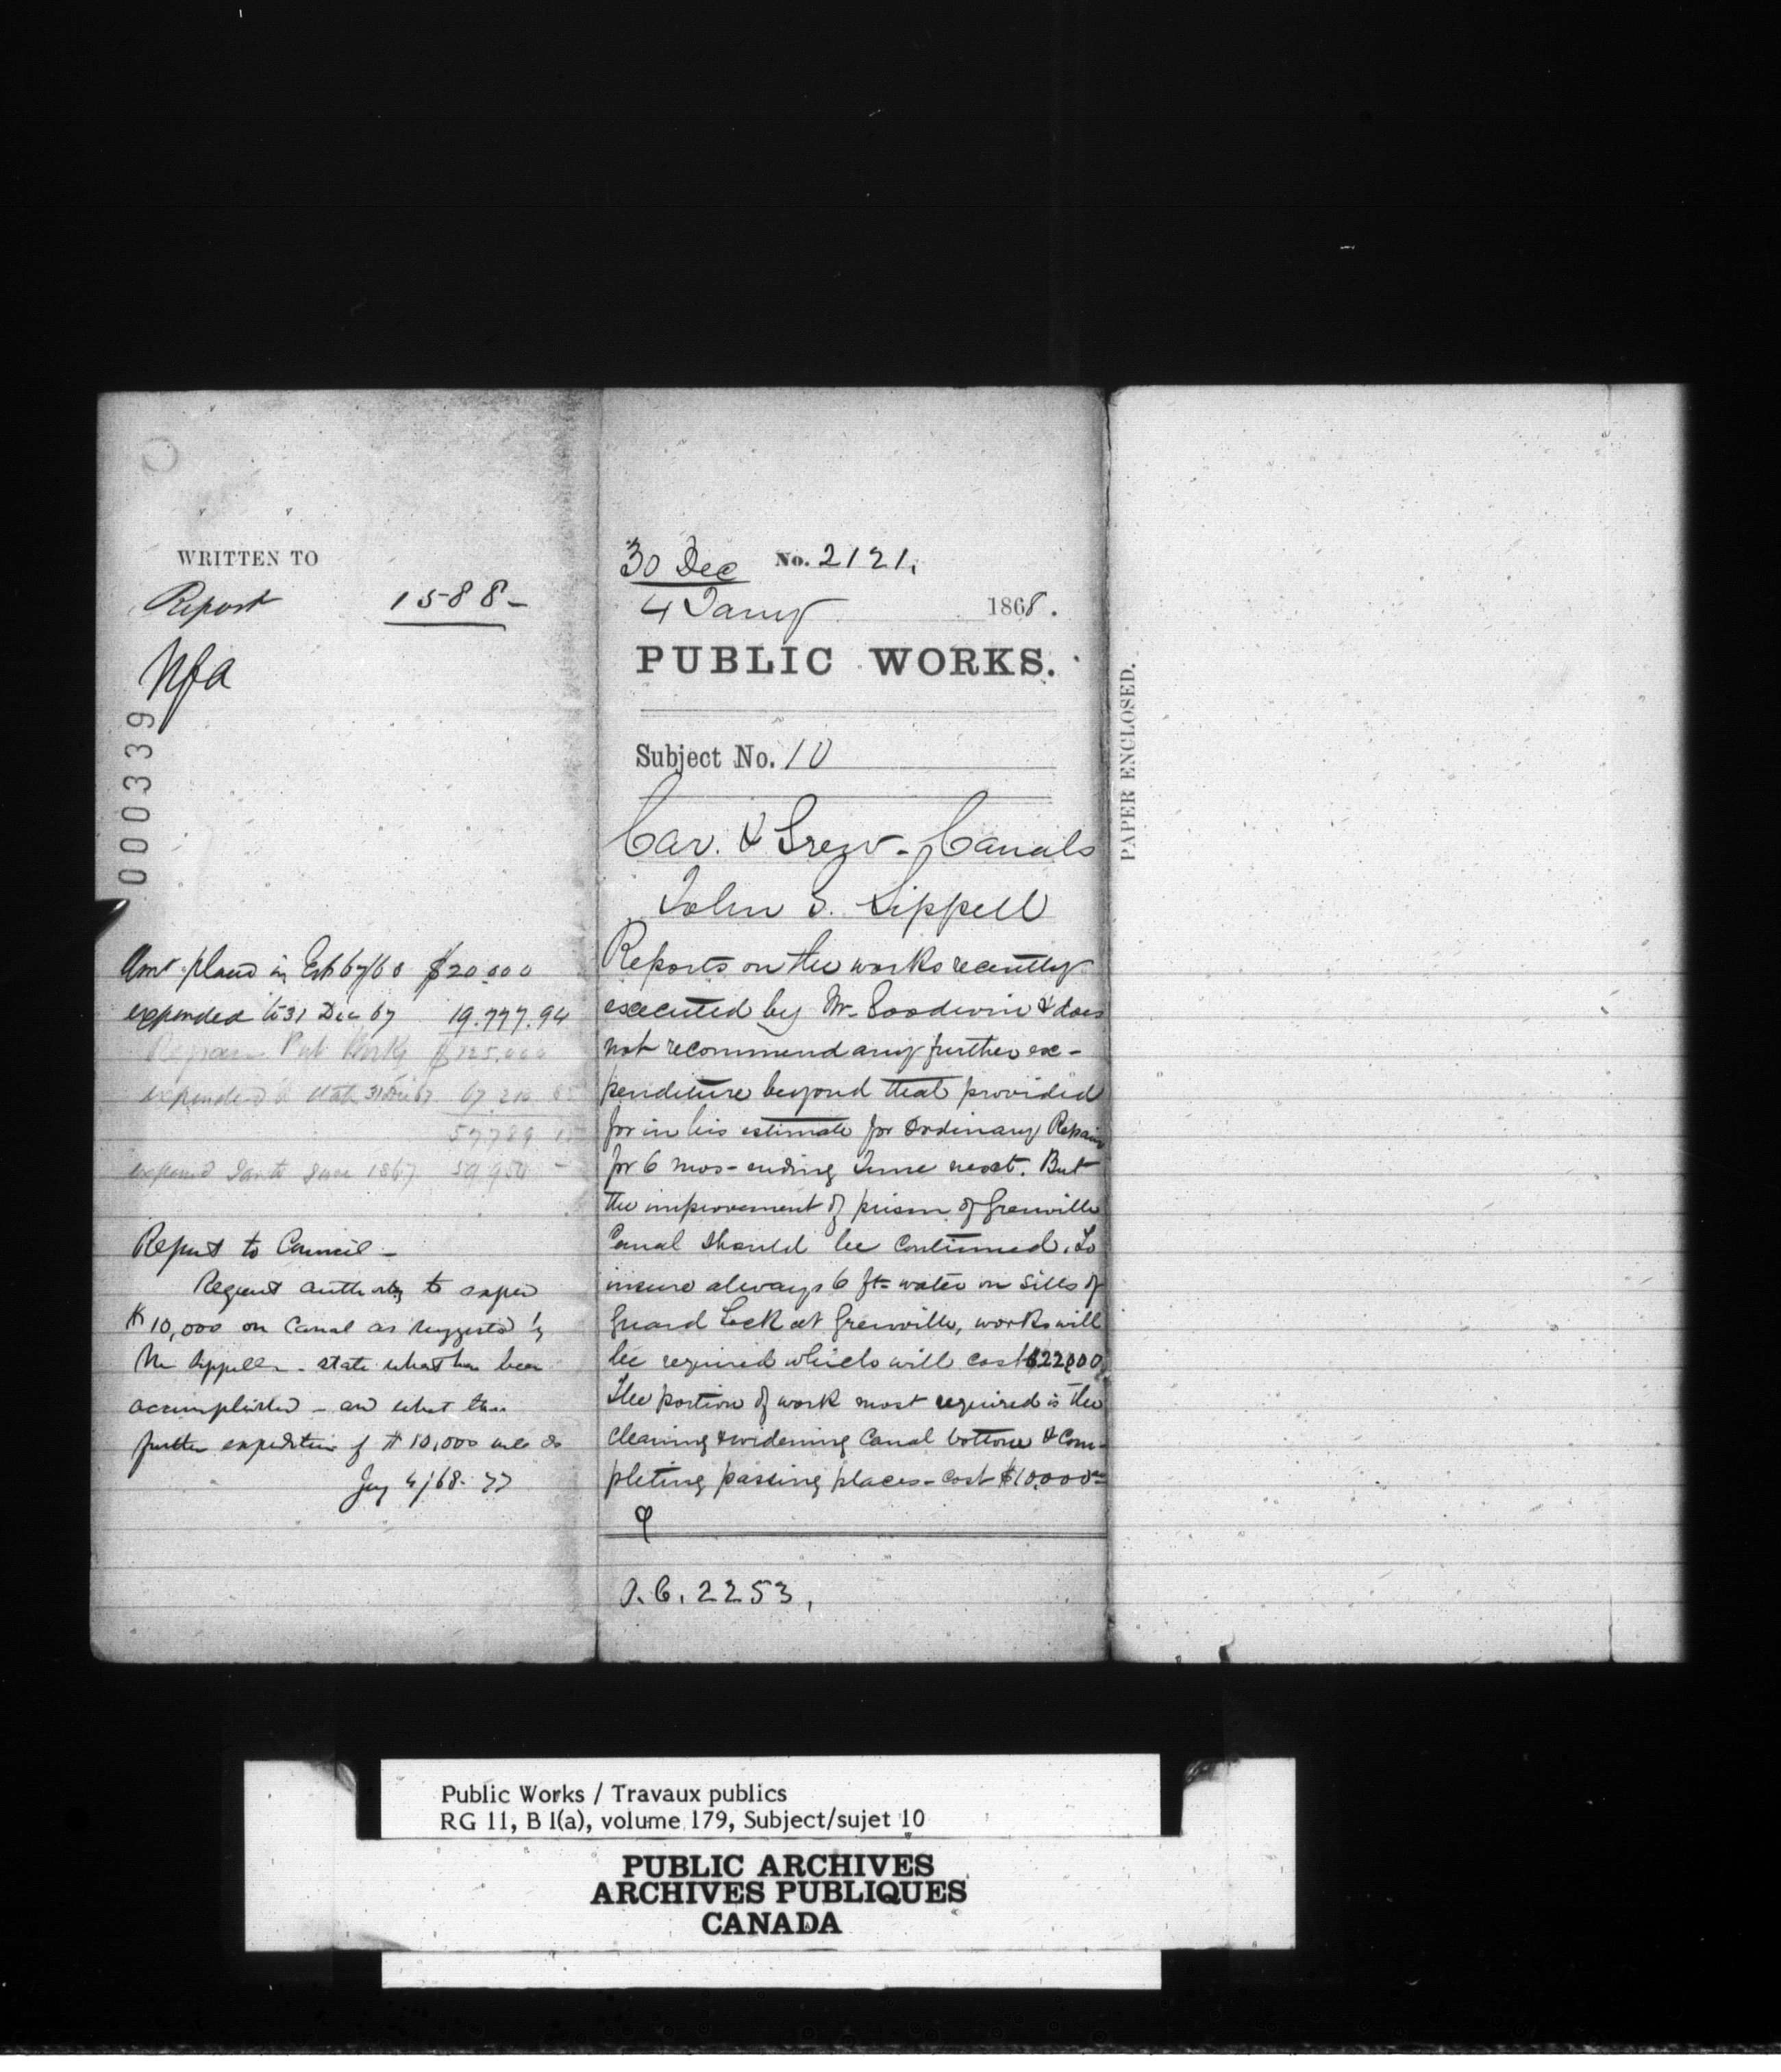 WRITTEN TO
Report 1588-
Nfa
000339
Amt placed in Est 67/68 $20.000
expended to 31 Dec 67 19.777.94
Repairs Pub Works $125,000
expended to date 31 Dec 67 67.210
57789
expend Jan to June 1867
Report to Council -
Request authority to expend
$10,000 on Canal as suggested by
Mr Sippell - state what has been
accomplished - and what this
further expenditure of $10,000 will do
Jay 4/68.
30 Dec No. 2121.
4 Jany 1868.
PUBLIC WORKS.
Subject No. 10
Car. & Gren. Canals
John G. Sippell
Reports on the works recently
executed by Mr. Goodwin & does
not recommend any further ex-
penditure beyond that provided
for in his estimate for Ordinary Repairs
for 6 mos- ending June next. But
the improvement of prism of Grenville
Canal should be continued. To
insure always 6 ft= water on Sills of
Guard Lock at Grenville, works will
be required which will cost $22,000
The portion of work most required is the
cleaning & widening Canal bottom & Com-
pleting passing places - cost $10.000
O.C. 2253,
PAPER ENCLOSED.
Public Works / Travaux publics
RG 11, B 1(a), volume 179, Subject/sujet 10
PUBLIC ARCHIVES
ARCHIVES PUBLIQUES
CANADA